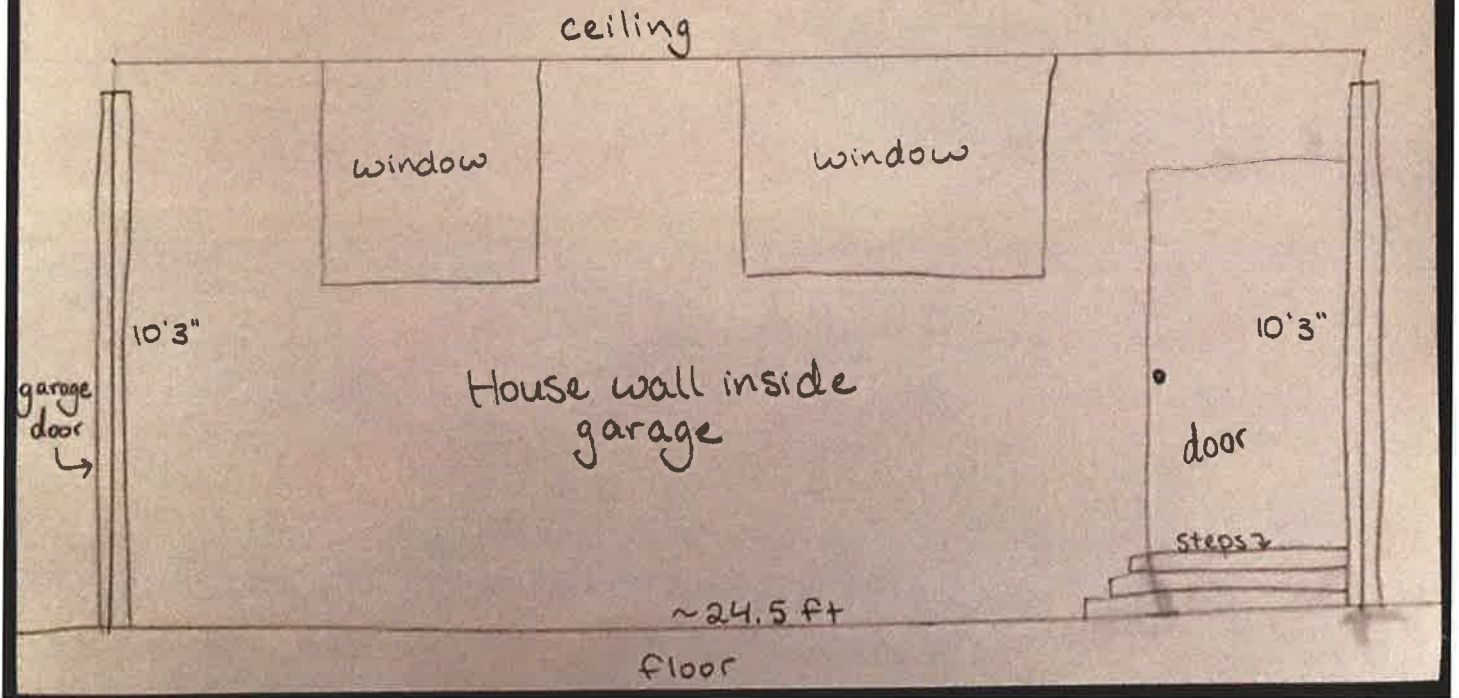 ceiling
window
window
10'3"
10'3"
garage
door
House wall inside
garage
door
steps
~24.5 ft
floor